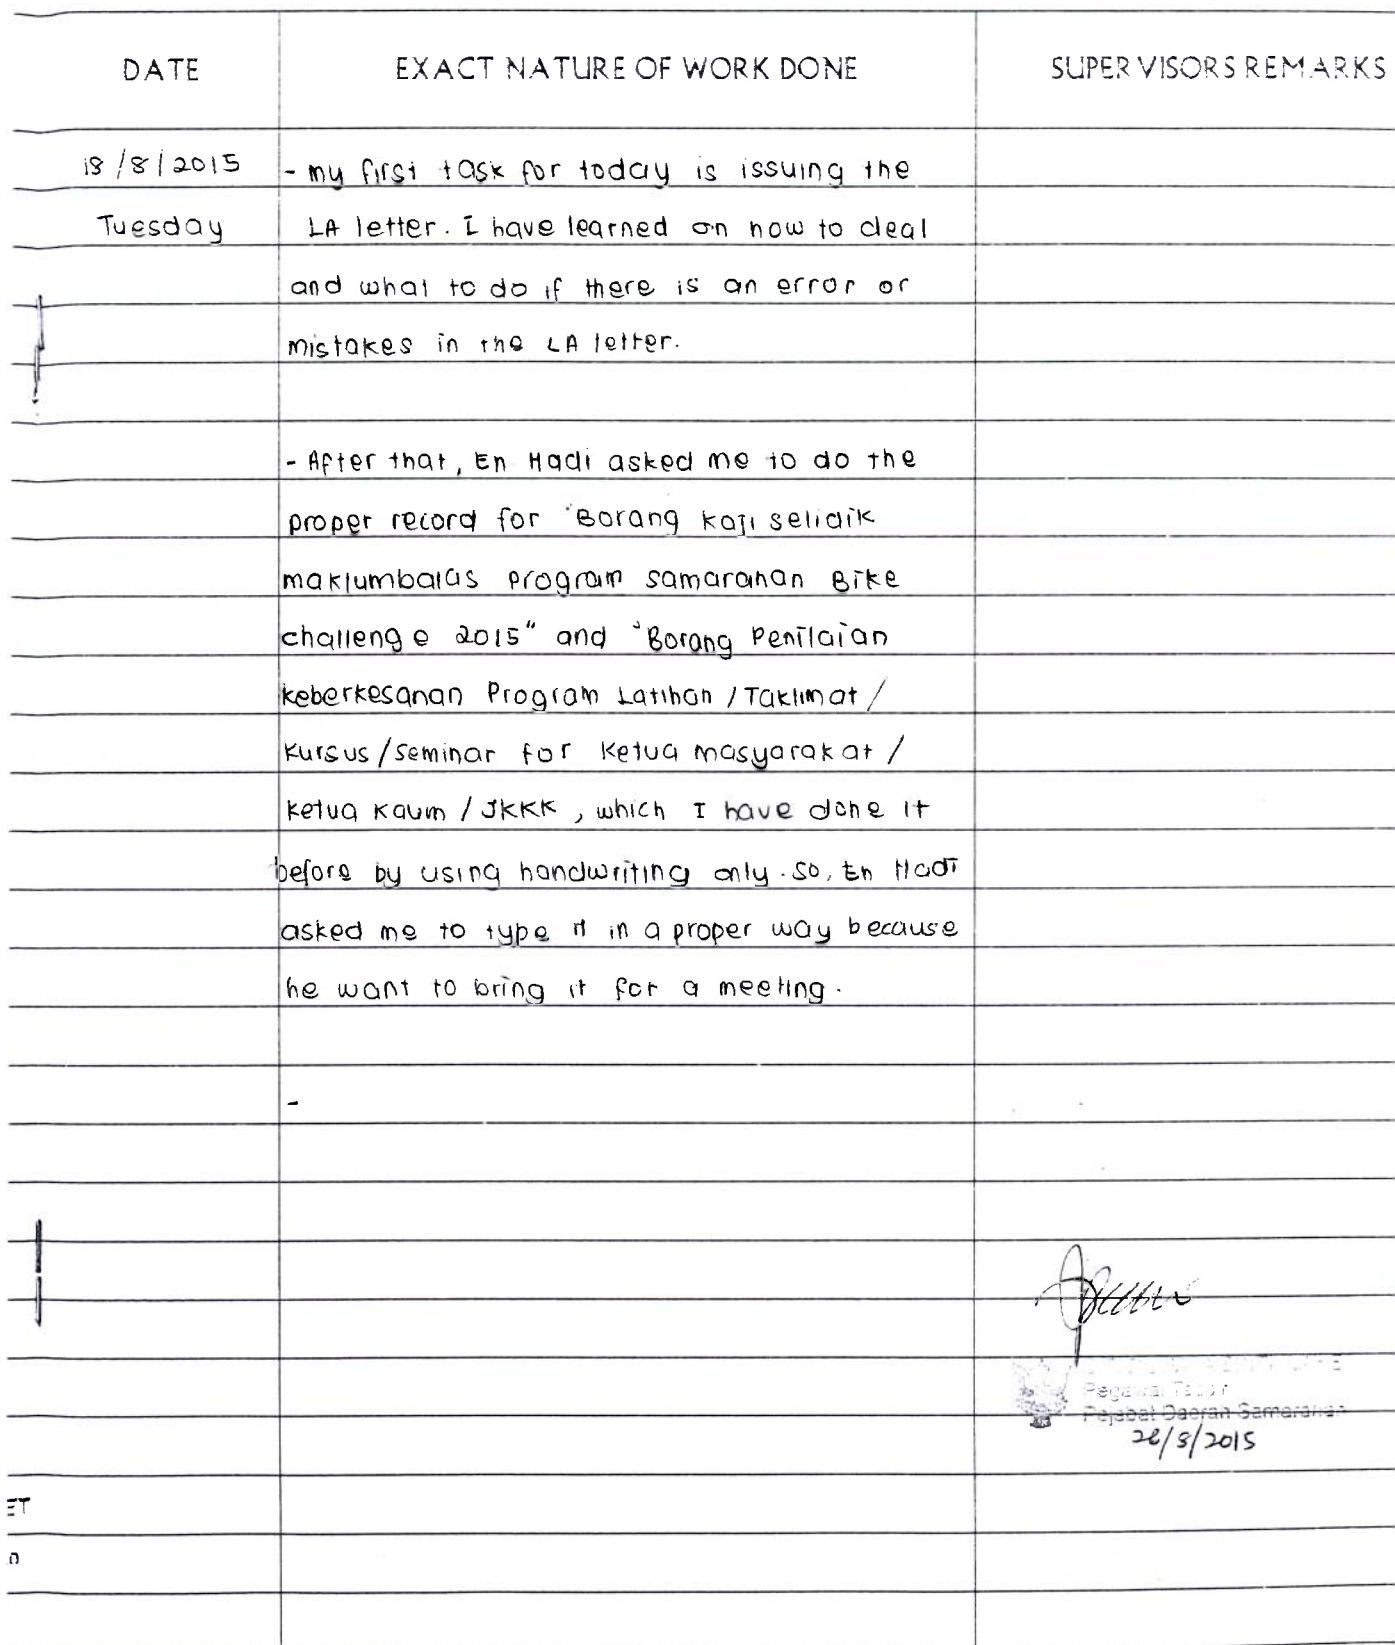 DATE EXACT NATURE OF WORK DONE SUPERVISORS REMARKS
18/8/2015 - my first task for today is issuing the
Tuesday LA letter. I have learned on how to deal
and what to do if there is an error or
mistakes in the LA letter.
- After that, En Hadi asked me to do the
proper record for "Borang kaji selidik
maklumbalas program samarahan Bike
challenge 2015" and "Borang Penilaian
keberkesanan Program Latihan / Taklimat /
kursus / seminar for ketua masyarakat /
ketua kaum / JKKK, which I have done it
before by using handwriting only. So, En Hadi
asked me to type it in a proper way because
he want to bring it for a meeting.
-
Pegawai Tadbir
Pejabat Daerah Samarahan
28/8/2015
ET